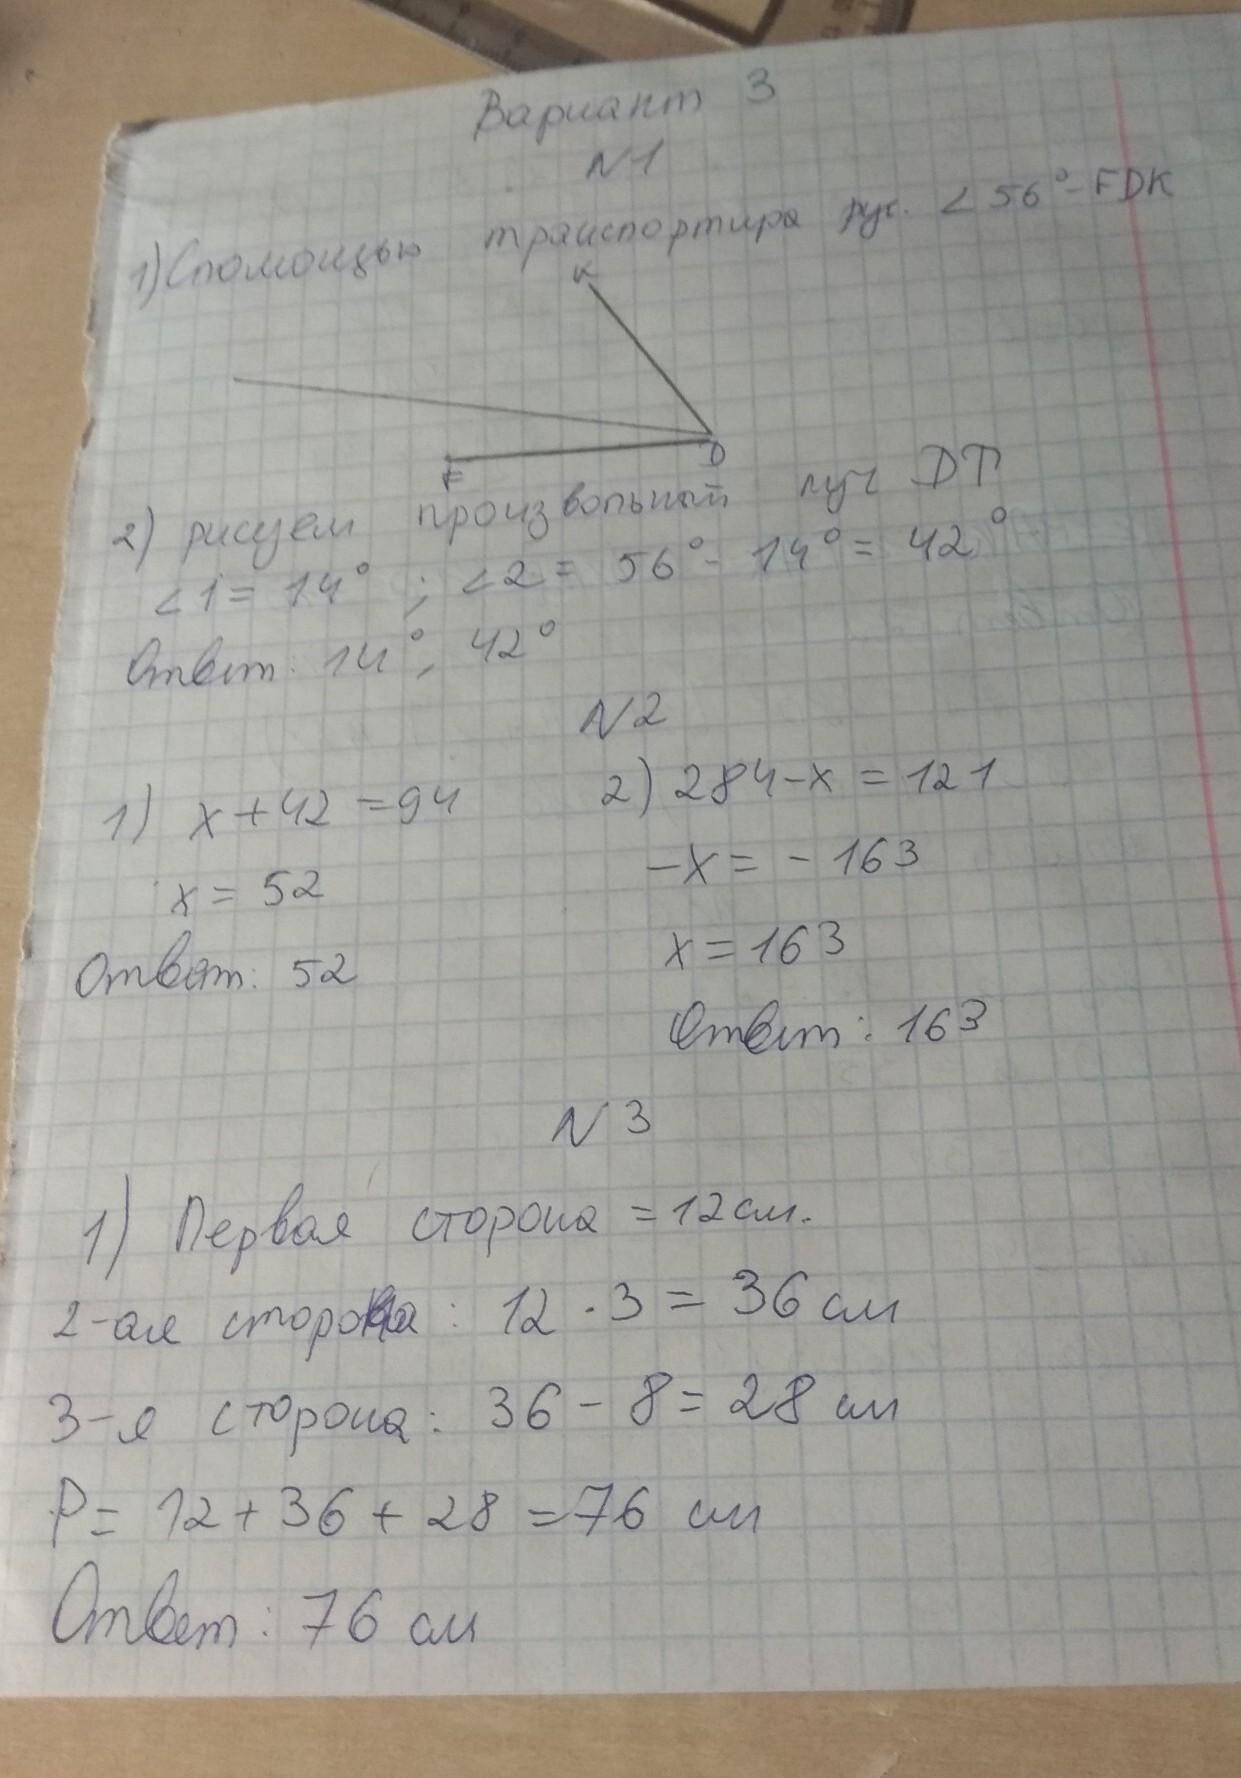 Вариант 3
N1
1) Спомощью транспортира рис. ∠56°-FDK
K
D
F
2) рисуем произвольный луч DT
∠1 = 14° ; ∠2 = 56° - 14° = 42°
Ответ: 14°, 42°
N2
1) x + 42 = 94
x = 52
Ответ: 52
2) 284 - x = 121
-x = - 163
x = 163
Ответ: 163
N3
1) Первая сторона = 12 см.
2-ая сторона: 12 · 3 = 36 см
3-я сторона: 36 - 8 = 28 см
P = 12 + 36 + 28 = 76 см
Ответ: 76 см